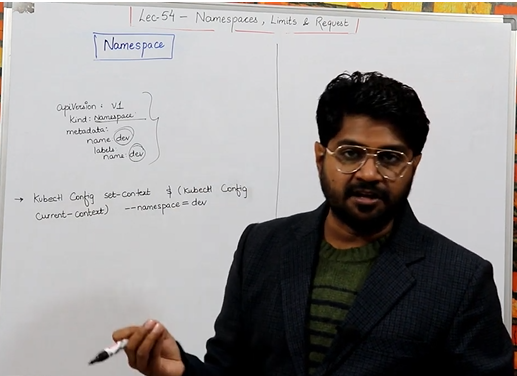 Lec-54 - Namespaces, Limits & Request
Namespace
apiVersion: v1
kind: Namespace
metadata:
name: dev
labels
name: dev
→ Kubectl Config set-context $ (Kubectl Config
current-context) --namespace = dev